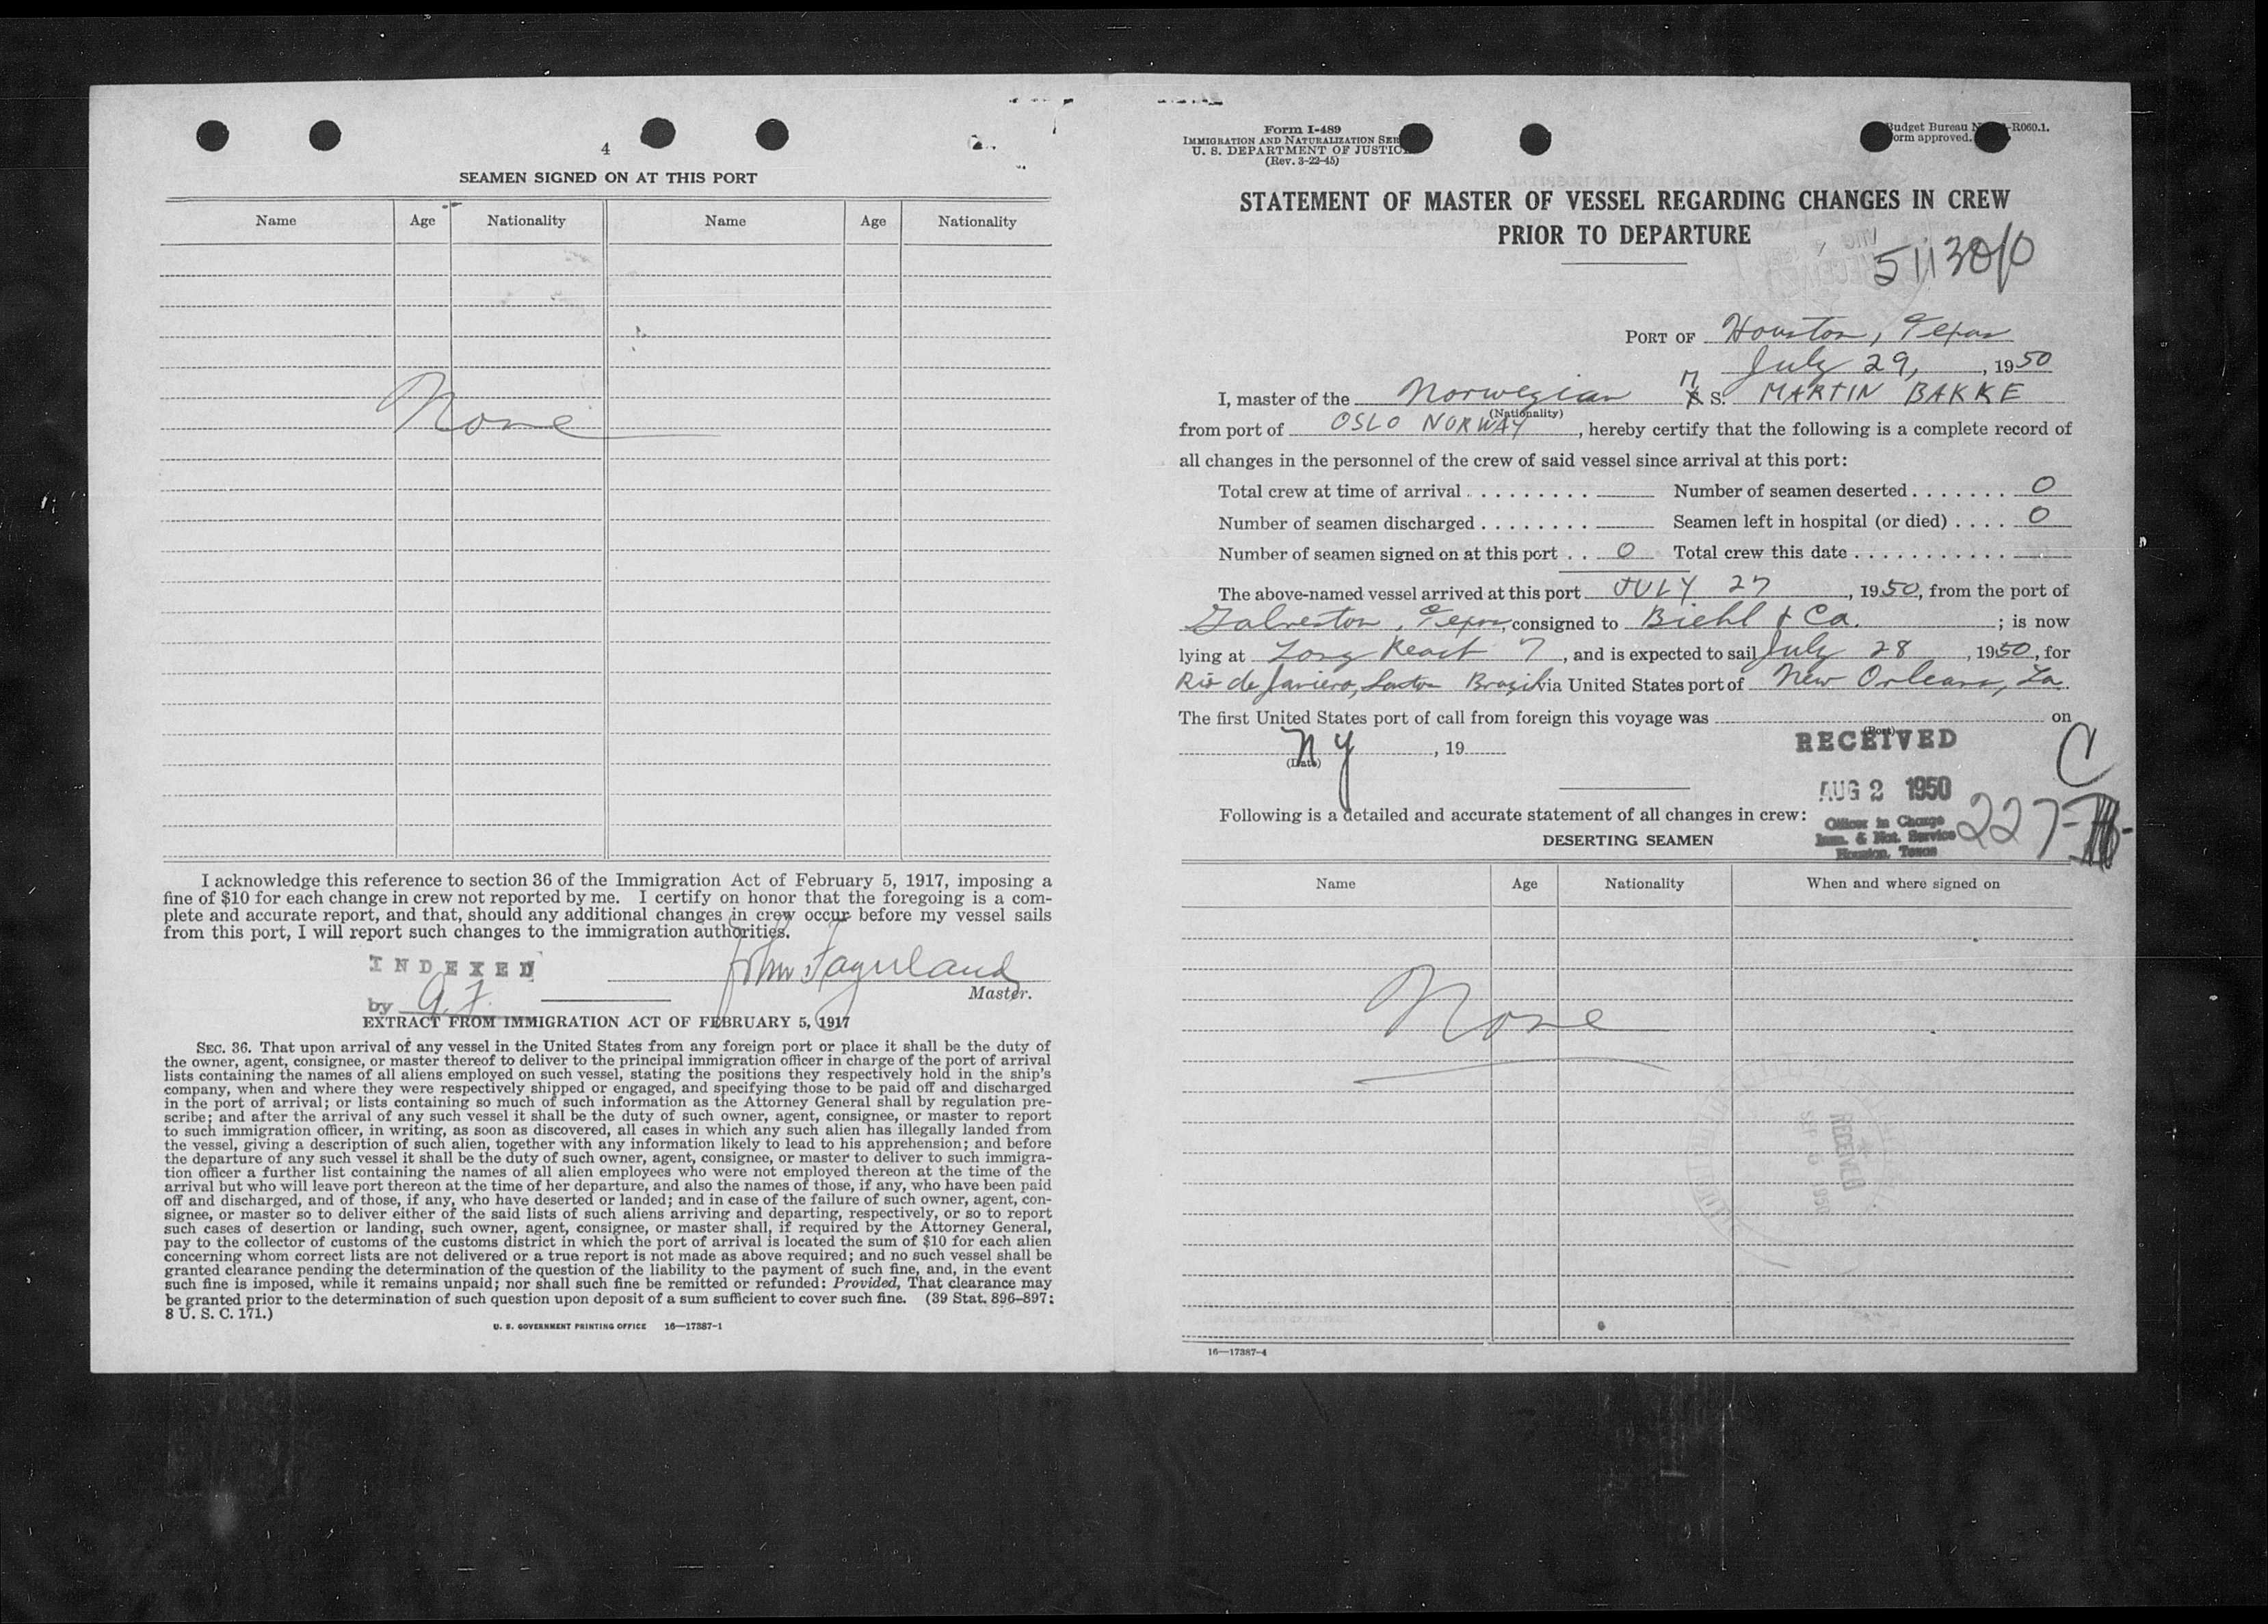 4
SEAMEN SIGNED ON AT THIS PORT
Name Age Nationality Name Age Nationality
None
I acknowledge this reference to section 36 of the Immigration Act of February 5, 1917, imposing a
fine of $10 for each change in crew not reported by me. I certify on honor that the foregoing is a com-
plete and accurate report, and that, should any additional changes in crew occur before my vessel sails
from this port, I will report such changes to the immigration authorities.
INDEXED
John
Master.
by
EXTRACT FROM IMMIGRATION ACT OF FEBRUARY 5, 1917
SEC. 36. That upon arrival of any vessel in the United States from any foreign port or place it shall be the duty of
the owner, agent, consignee, or master thereof to deliver to the principal immigration officer in charge of the port of arrival
lists containing the names of all aliens employed on such vessel, stating the positions they respectively hold in the ship's
company, when and where they were respectively shipped or engaged, and specifying those to be paid off and discharged
in the port of arrival; or lists containing so much of such information as the Attorney General shall by regulation pre-
scribe; and after the arrival of any such vessel it shall be the duty of such owner, agent, consignee, or master to report
to such immigration officer, in writing, as soon as discovered, all cases in which any such alien has illegally landed from
the vessel, giving a description of such alien, together with any information likely to lead to his apprehension; and before
the departure of any such vessel it shall be the duty of such owner, agent, consignee, or master to deliver to such immigra-
tion officer a further list containing the names of all alien employees who were not employed thereon at the time of the
arrival but who will leave port thereon at the time of her departure, and also the names of those, if any, who have been paid
off and discharged, and of those, if any, who have deserted or landed; and in case of the failure of such owner, agent, con-
signee, or master so to deliver either of the said lists of such aliens arriving and departing, respectively, or so to report
such cases of desertion or landing, such owner, agent, consignee, or master shall, if required by the Attorney General,
pay to the collector of customs of the customs district in which the port of arrival is located the sum of $10 for each alien
concerning whom correct lists are not delivered or a true report is not made as above required; and no such vessel shall be
granted clearance pending the determination of the question of the liability to the payment of such fine, and, in the event
such fine is imposed, while it remains unpaid; nor shall such fine be remitted or refunded: Provided, That clearance may
be granted prior to the determination of such question upon deposit of a sum sufficient to cover such fine. (39 Stat. 896-897;
8 U. S. C. 171.)
U. S. GOVERNMENT PRINTING OFFICE 16—17387-1
Form I-489
IMMIGRATION AND NATURALIZATION SER
U. S. DEPARTMENT OF JUSTIC
(Rev. 3-22-45)
Budget Bureau N -R060.1.
orm approved.
STATEMENT OF MASTER OF VESSEL REGARDING CHANGES IN CREW
PRIOR TO DEPARTURE
PORT OF Houston, Texas
July 29, , 1950
I, master of the Norwegian M S. MARTIN BAKKE
(Nationality)
from port of OSLO NORWAY , hereby certify that the following is a complete record of
all changes in the personnel of the crew of said vessel since arrival at this port:
Total crew at time of arrival Number of seamen deserted 0
Number of seamen discharged Seamen left in hospital (or died) 0
Number of seamen signed on at this port 0 Total crew this date
The above-named vessel arrived at this port JULY 27 , 1950, from the port of
Galveston, Texas, consigned to Biehl & Co. ; is now
lying at Long Reach 7 , and is expected to sail July 28 , 1950, for
Rio de Janiero, Santos Brazil via United States port of New Orleans, La.
The first United States port of call from foreign this voyage was on
(Port)
NY , 19
(Date)
RECEIVED
AUG 2 1950
Officer in Charge
Imm. & Nat. Service
Houston, Texas
C
227-
Following is a detailed and accurate statement of all changes in crew:
DESERTING SEAMEN
Name Age Nationality When and where signed on
None
RECEIVED
16—17387-4